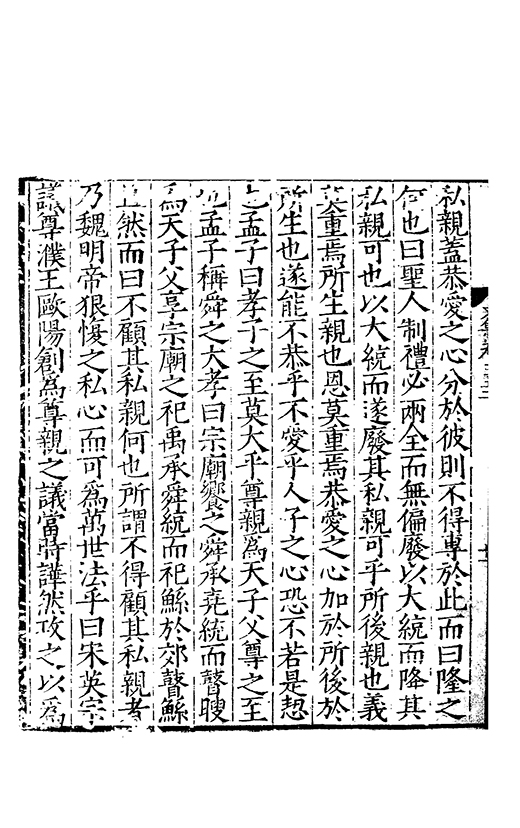 私親蓋恭愛之心分於彼則不得專於此而曰隆之
何也曰聖人制禮必兩全而無偏廢以大統而降其
私親可也以大統而遂廢其私親可乎所後親也義
莫重焉所生親也恩莫重焉恭愛之心加於所後於
所生也遂能不恭乎不愛乎人子之心恐不若是恝
也孟子曰孝子之至莫大乎尊親為天子父尊之至
也孟子稱舜之大孝曰宗廟饗之舜承堯統而瞽瞍
為天子父享宗廟之祀禹承舜統而祀鯀於郊瞽鯀
且然而曰不顧其私親何也所謂不得顧其私親者
乃魏明帝狠愎之私心而可為萬世法乎曰宋英宗
議尊濮王歐陽創為尊親之議當時譁然攻之以為